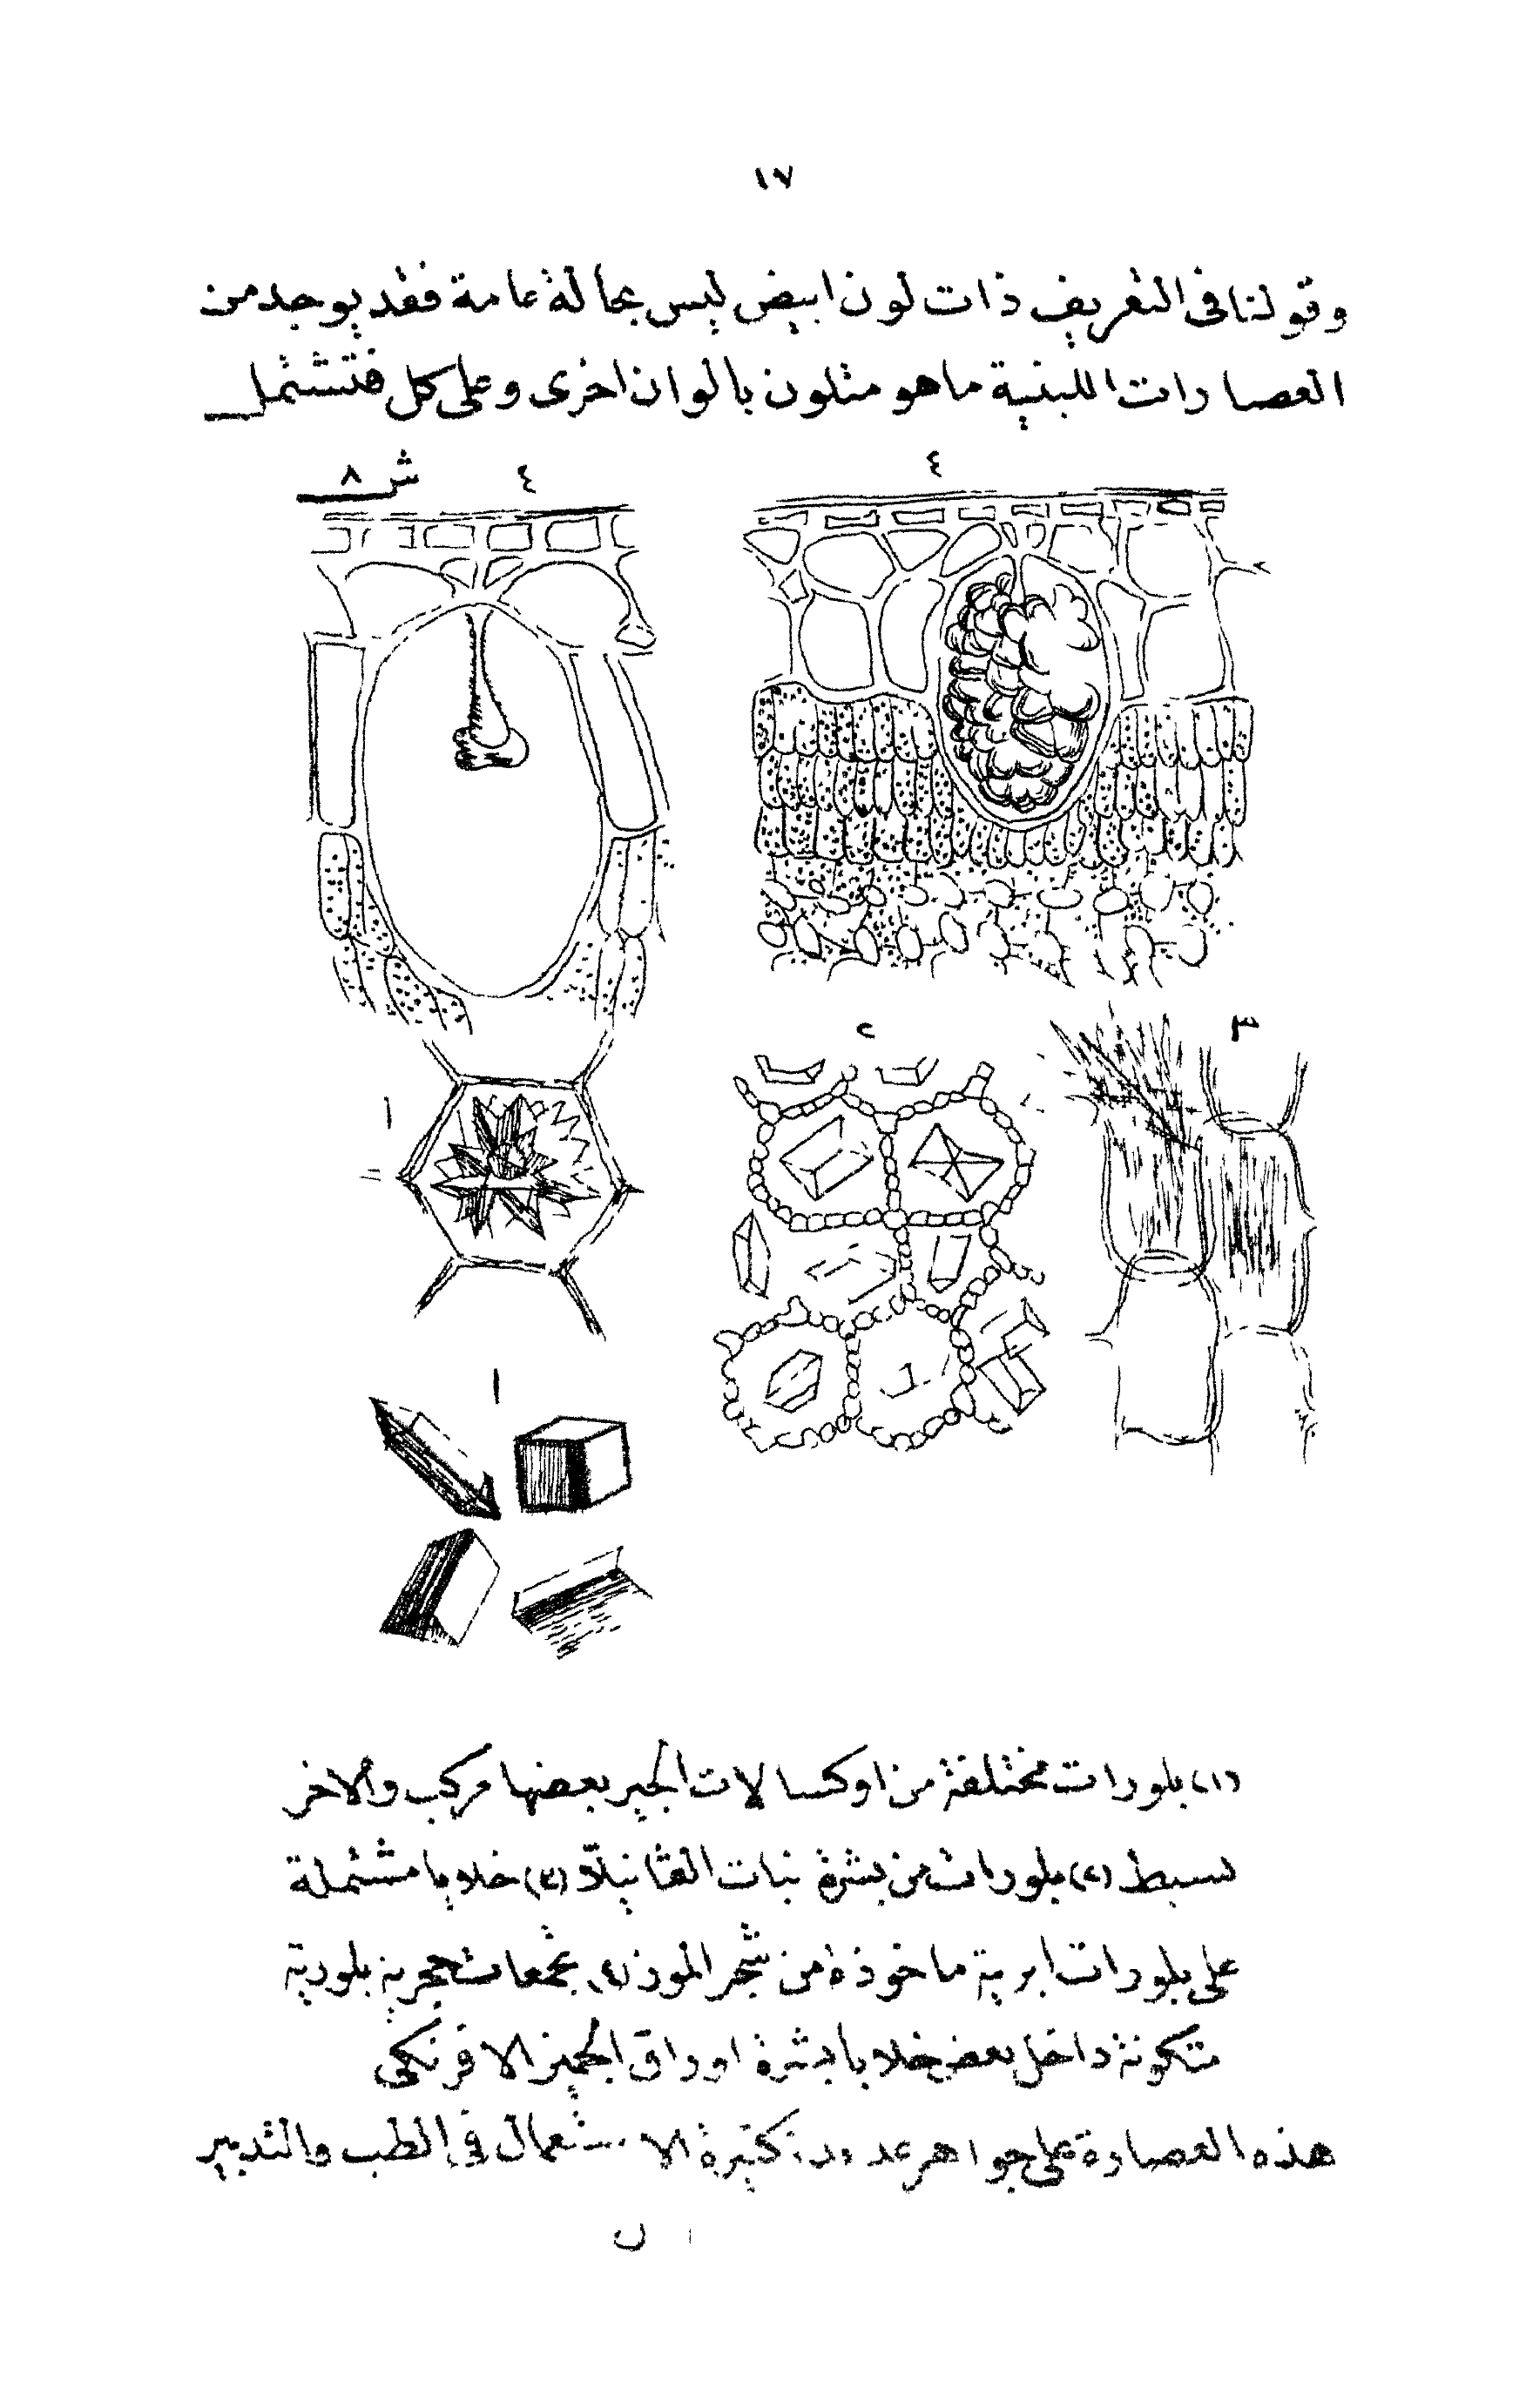 ١٧
وقولنا فى التعريف ذات لون ابيض ليس بحالة عامة فقد يوجد من
العصارات اللبنية ما هو متلون بالوان اخرى وعلى كل فتشتمل
٤
٤
ش ٨
٣
٢
ا
ا
(١) بلورات مختلفة من اوكسالات الجير بعضها مركب والاخر
بسيط (٢) بلورات من بشرة نبات الڤانيلا (٣) خلايا مشتملة
على بلورات ابرية ماخوذة من شجر الموز (٤) تجمعات حجرية بلورية
متكونة داخل بعض خلايا بشرة اوراق الجميز الافرنكى
هذه العصارة على جواهر عديدة كثيرة الاستعمال فى الطب والتدبير